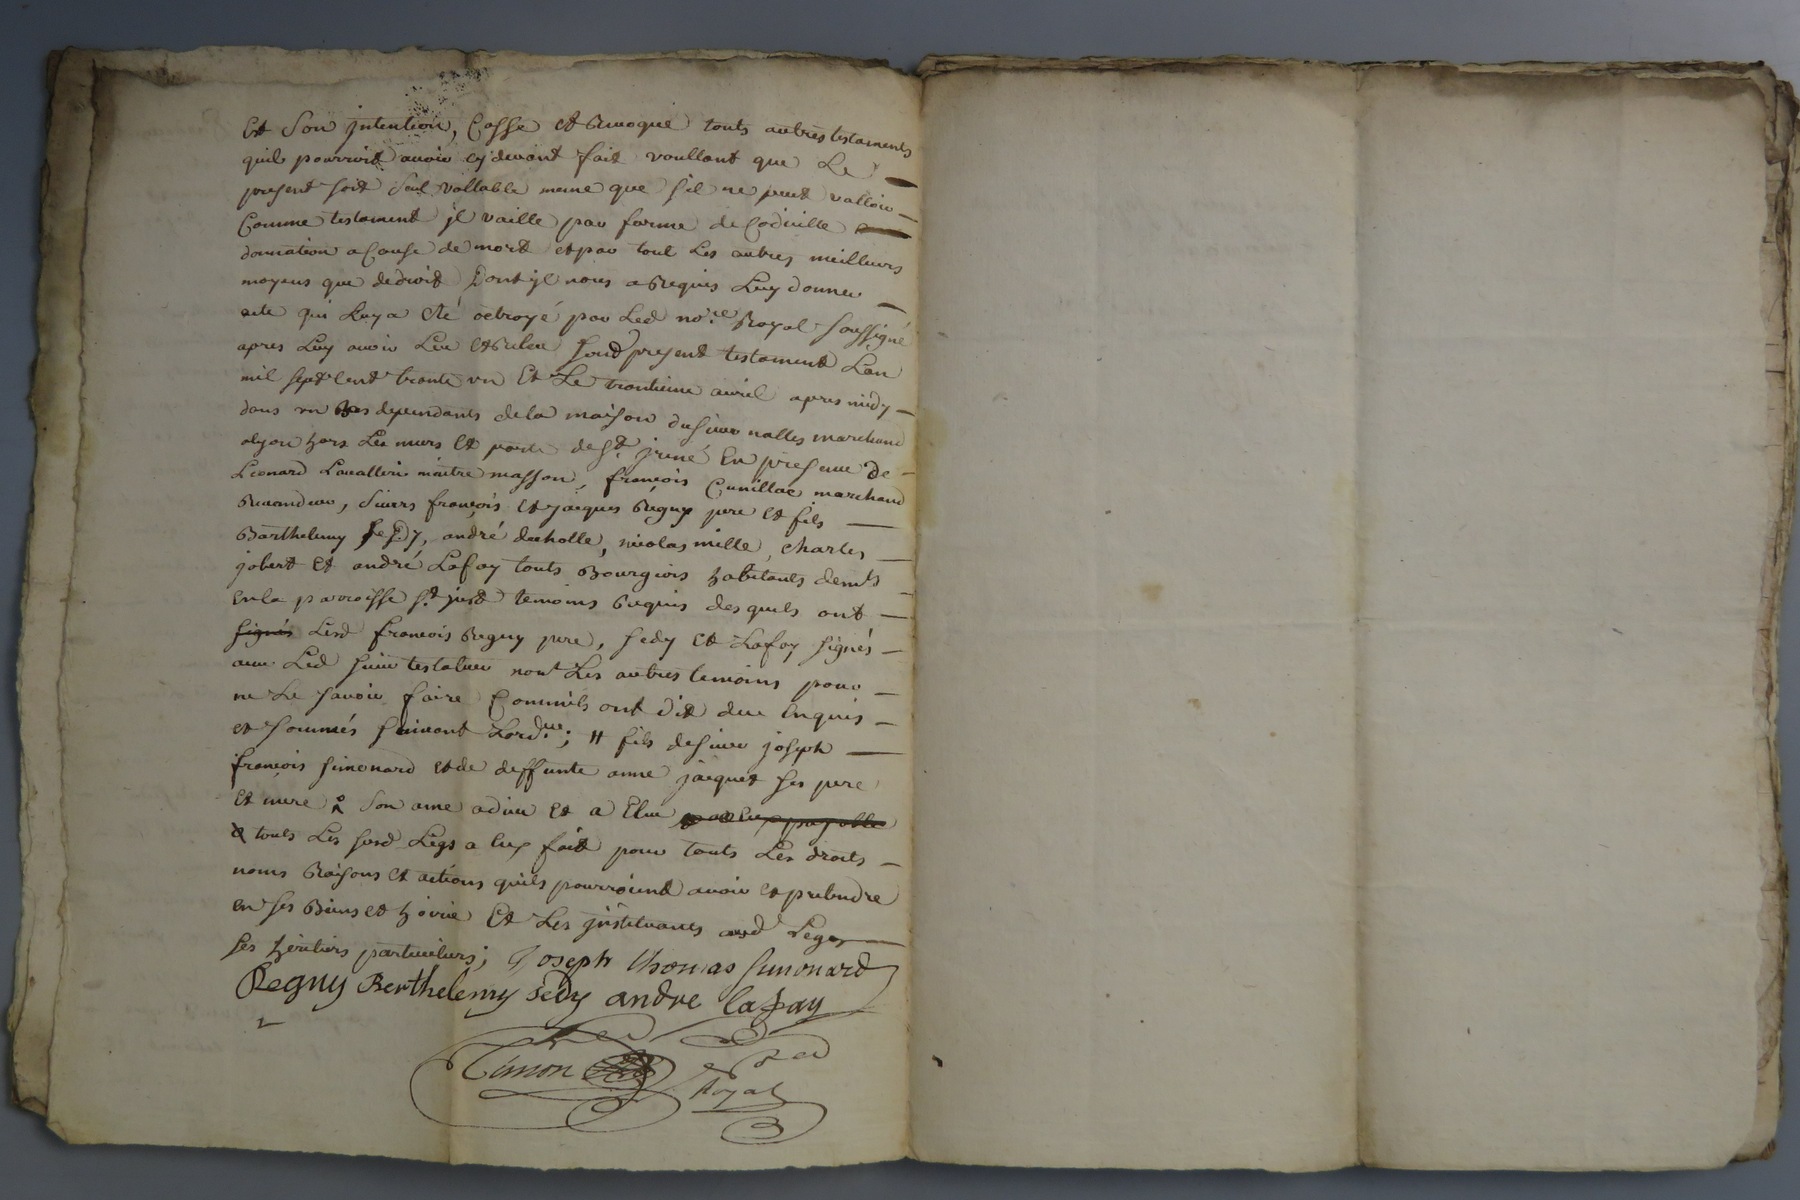 Et Son jntention, Casse et Revoque touts autres testaments
quil pourroit avoir cy devant fait voullant que Le
present soit seul vallable meme que sil ne peut valloir
Comme testament jl vaille par forme de Codicille
donnation a Cause de mort et par tout Les autres meilleurs
moyens que de droit Dont jl nous a Requis Luy donner
acte qui Luy a Eté octroyé par Led no.re Royal soussigné
apres Luy avoir Leu et Releu sond present testament L'an
mil sept Cent trante un Et Le trantieme avril apres midy
dans un dependants de la maison du sieur nalles marchand
alyon hors Les murs Et porte de St jrené En presence de
Leonard Lavallerie maitre masson, françois Cunillac marchand
, sieurs françois et jacques Regny pere et fils
Barthelemy Sedy, andré ducholle, nicolas mille, Charles
jobert et andré Lafay touts Bourgeois habitants
En la parroisse St just temoins Requis des quels ont
signés Lesd françois Regny pere, sedy et Lafay signés
avec Led sieur testateur non Les autres temoins pour
ne Le savoir faire Comm'ils ont dit de ce Enquis
et sommés suivant Lord.ce; # fils de sieur joseph
françois simonard et de deffunte anne jacquet ses pere
et mere Son ame a dieu et a Elue
touts Les susd Legs a Eux fait pour touts Les droits
noms Raisons et actions qu'ils pourroient avoir et pretendre
en ses Biens et hoirie Et Les jnstituants aud Legs
ses heritiers particuliers; Joseph thomas simonard
Regny Berthelemy sedy andre lafay
Simon
Royal